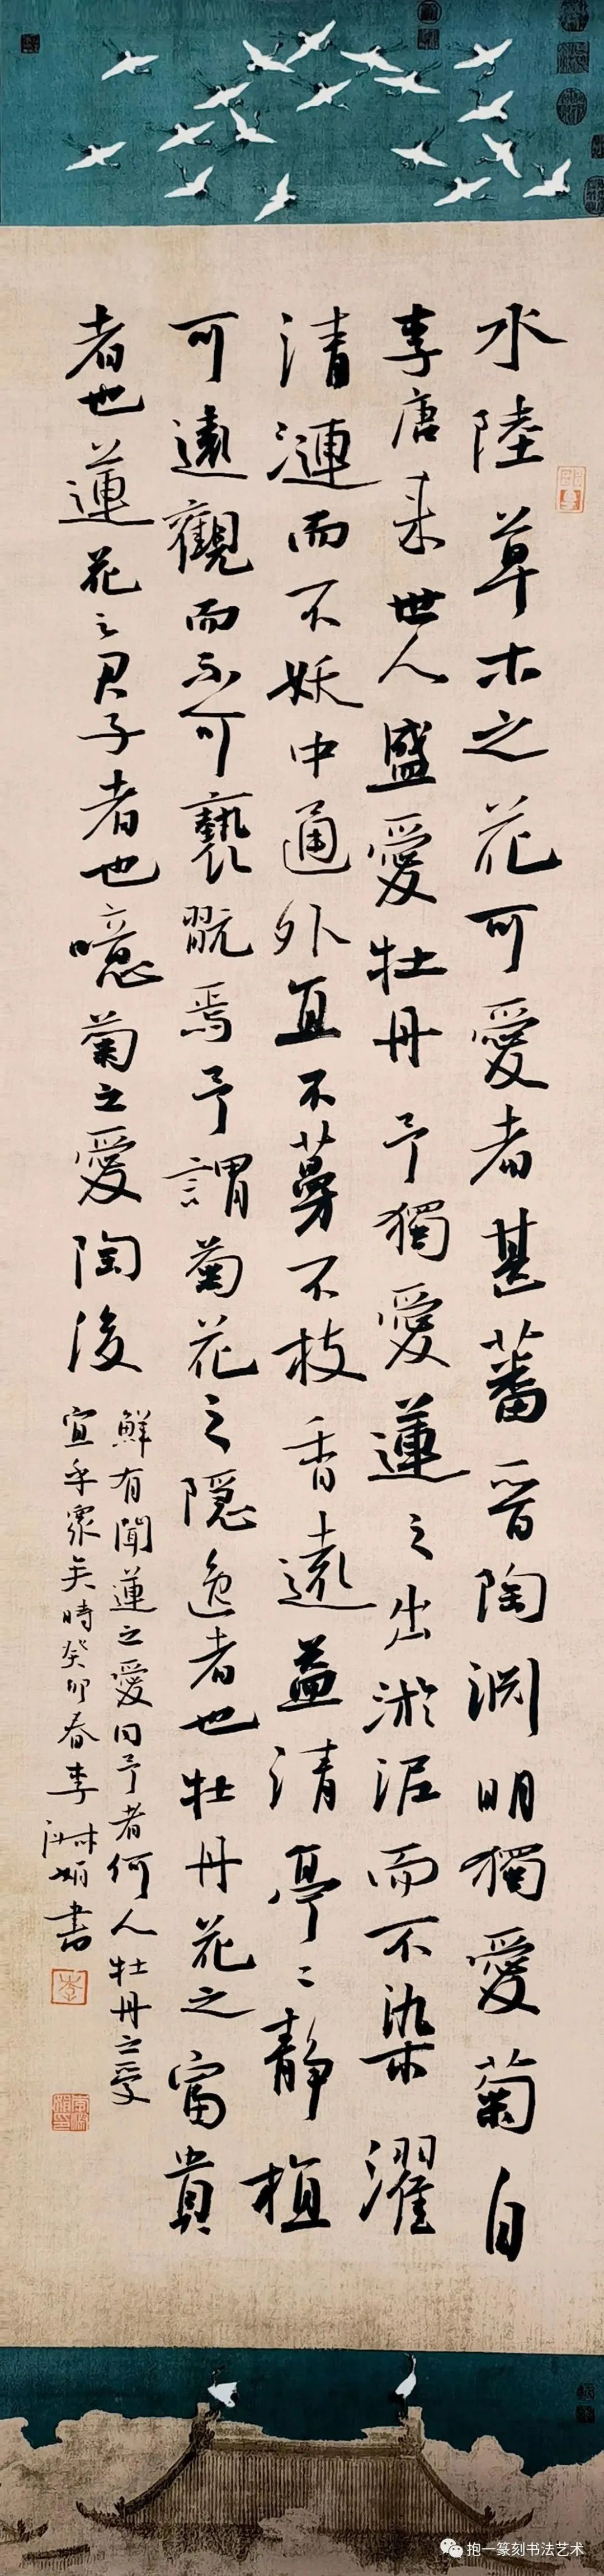 水陸草木之花可愛者甚蕃晋陶渊明獨愛菊自
李唐来世人盛愛牡丹予獨愛蓮之出淤泥而不染濯
清漣而不妖中通外直不蔓不枝香遠益清亭〻静植
可遠觀而不可褻翫焉予謂菊花之隱逸者也牡丹花之富貴
者也蓮花之君子者也噫菊之愛陶後
鮮有聞蓮之愛同予者何人牡丹之愛
宜乎衆矣時癸卯春李淋娟書
李
抱一篆刻书法艺术